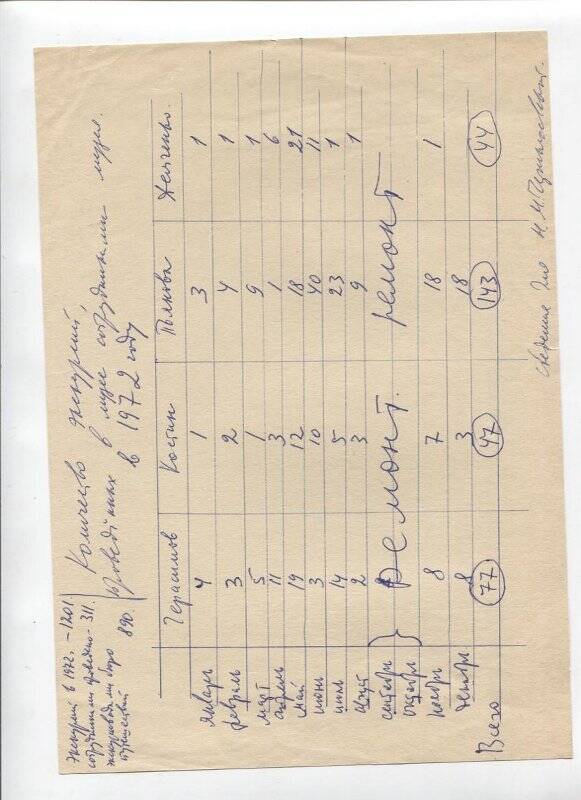 Экскурсий в 1972г. – 1201.
сотрудниками проведено – 311.
экскурсоводами бюро
путешествий 890.
Количество экскурсий,
проведённых в музее сотрудниками музея
в 1972 году
Герасимов Костин Полякова
Январь 4 1 3 1
февраль 3 2 4 1
март 5 1 9 1
апрель 11 3 1 6
май 19 12 18 21
июнь 3 10 40 11
июль 14 5 23 1
август 2 3 9 1
сентябрь
октябрь } ремонт. ремонт
ноябрь 8 7 18 1
декабрь 8 3 18
Всего 77 47 143 44
сведения для Н. М.